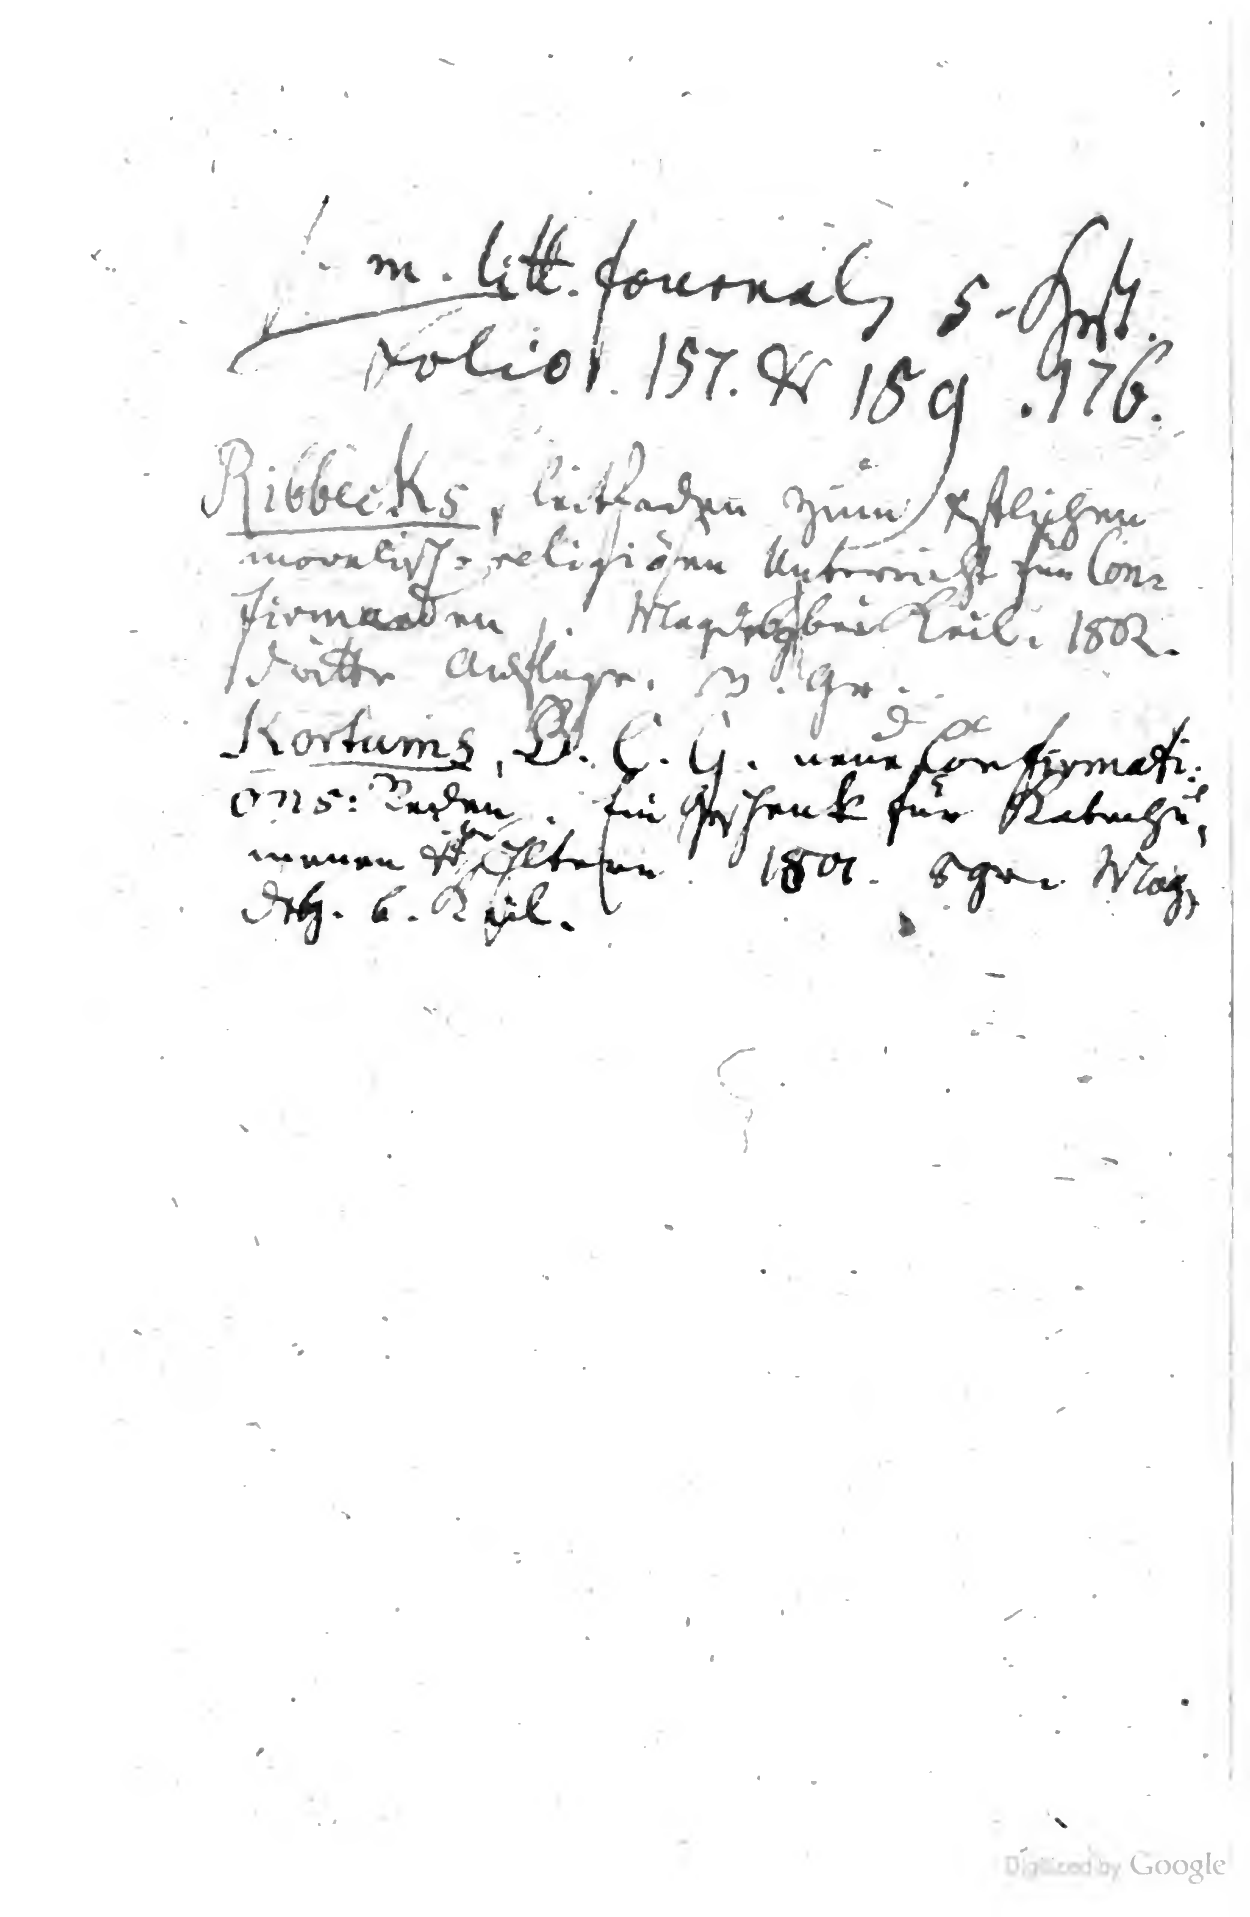 m. litt. Journals 5-Heft.
Folio 157. & 159. 176.
Ribbecks, Leitfaden zum xstlichen
moralisch-religiösen Unterricht für Con-
firmanden. Magdebg bei Keil. 1802.
dritte Auflage. gr.
Kortums, D. C. G. neue Confirmati-
ons: Reden. Ein Geschenk für Katechu-
menen Ältern 1801. 8 gr. Mag,
debg. b. Keil.
Digitized by Google